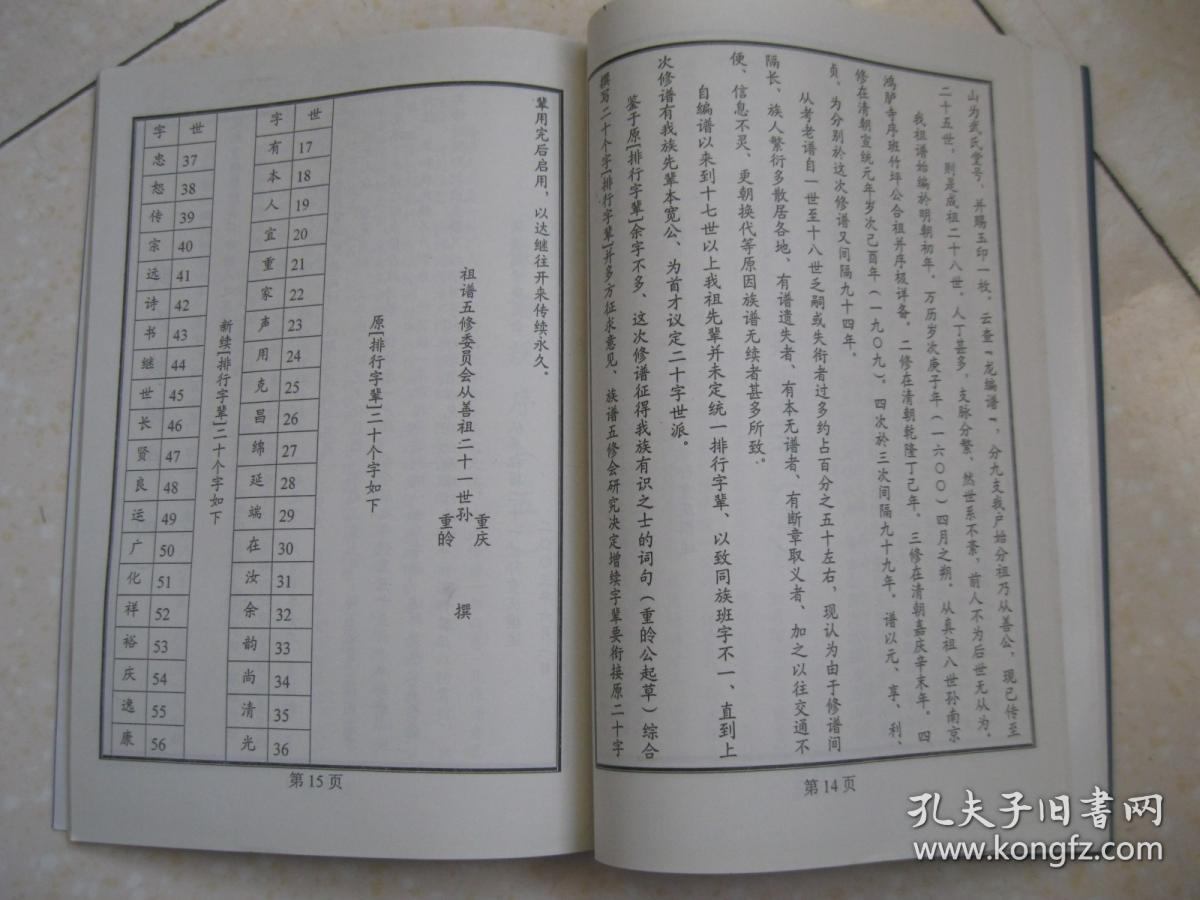 山为武氏堂号，并赐玉印一枚。云查“龙编谱”，分九支我户始分祖乃从善公，现已传至
二十五世，则是成祖二十八世，人丁甚多，支脉分繁、然世系不紊，前人不为后世无从为，
我祖谱始编於明朝初年，万历岁次庚子年（一六〇〇）四月之朔，从真祖八世孙南京
鸿胪寺序班竹坪公合祖并序极详备，二修在清朝乾隆丁己年。三修在清朝嘉庆辛未年。四
修在清朝宣统元年岁次己酉年（一九〇九）。四次於三次间隔九十九年。谱以元、享、利、
贞，为分别於这次修谱又间隔九十四年。
从考老谱自一世至十八世乏嗣或失衔者过多约占百分之五十左右，现认为由于修谱间
隔长、族人繁衍多散居各地、有谱遗失者、有本无谱者、有断章取义者、加之以往交通不
便、信息不灵、更朝换代等原因族谱无续者甚多所致。
自编谱以来到十七世以上我祖先辈并未定统一排行字辈、以致同族班字不一、直到上
次修谱有我族先辈本宽公、为首才议定二十字世派。
鉴于原[排行字辈]余字不多、这次修谱征得我族有识之士的词句（重皊公起草）综合
撰写二十个字[排行字辈]并多方征求意见、族谱五修会研究决定增续字辈要衔接原二十字
第14页
辈用完后启用，以达继往开来传续永久。
祖谱五修委员会从善祖二十一世孙
重庆
重皊
撰
原[排行字辈]二十个字如下
字 世
有 17
本 18
人 19
宜 20
重 21
家 22
声 23
用 24
克 25
昌 26
绵 27
延 28
端 29
在 30
汝 31
余 32
韵 33
尚 34
清 35
光 36
新续[排行字辈]二十个字如下
字 世
忠 37
恕 38
传 39
宗 40
远 41
诗 42
书 43
继 44
世 45
长 46
贤 47
良 48
运 49
广 50
化 51
祥 52
裕 53
庆 54
逸 55
康 56
第15页
孔夫子旧书网
www.kongfz.com